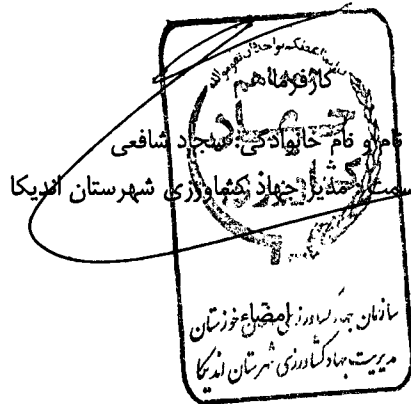 کارفرما هم
نام و نام خانوادگی: سجاد شافعی
سمت: مدیر جهاد کشاورزی شهرستان اندیکا
جهاد
امضاء
سازمان جهاد کشاورزی خوزستان
مدیریت جهاد کشاورزی شهرستان اندیکا